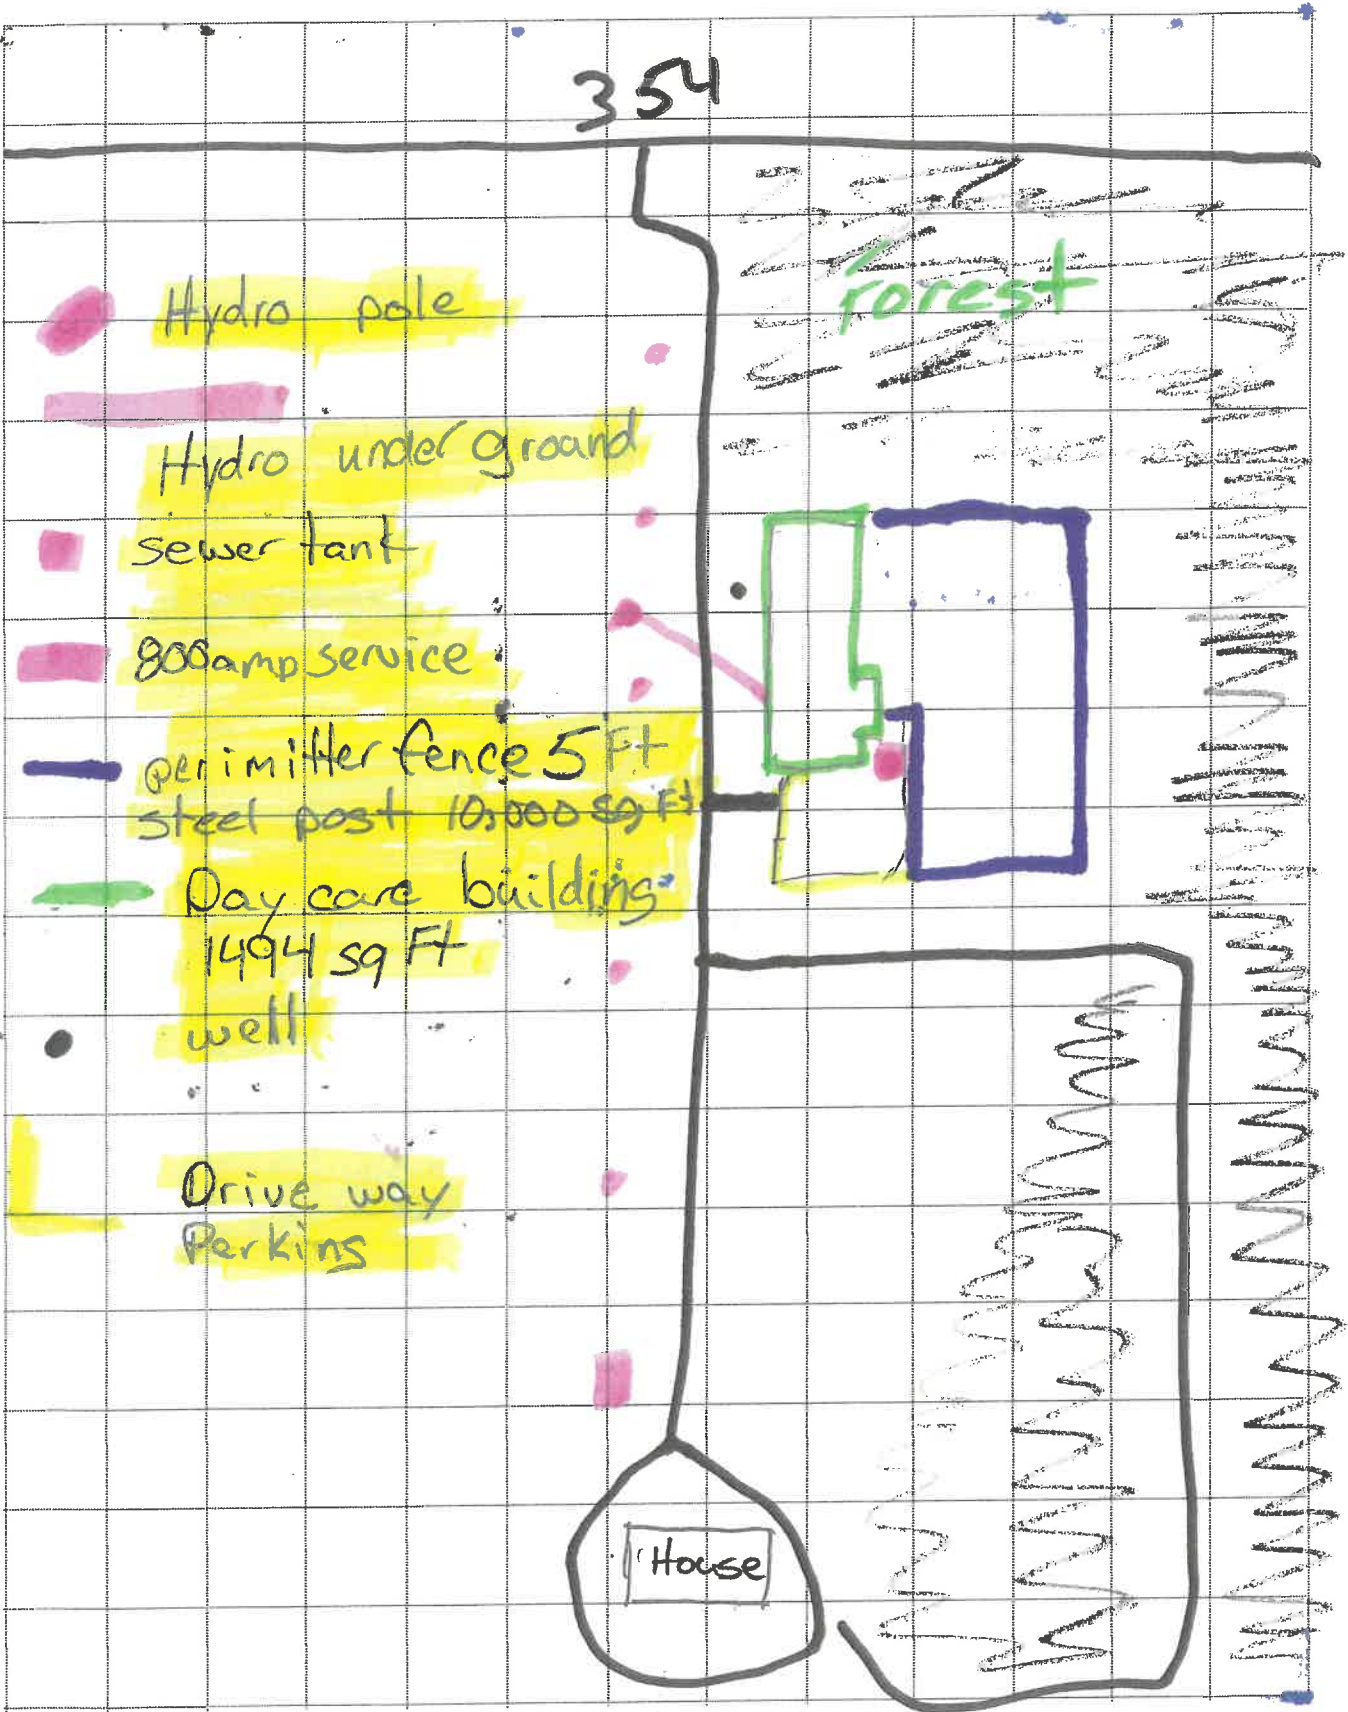 354
Forest
Hydro pole
Hydro under ground
sewer tank
800amp service
perimitter fence 5 Ft
steel post 10,000 sq Ft
Day care building
1494 sq Ft
well
Drive way
Perking
House